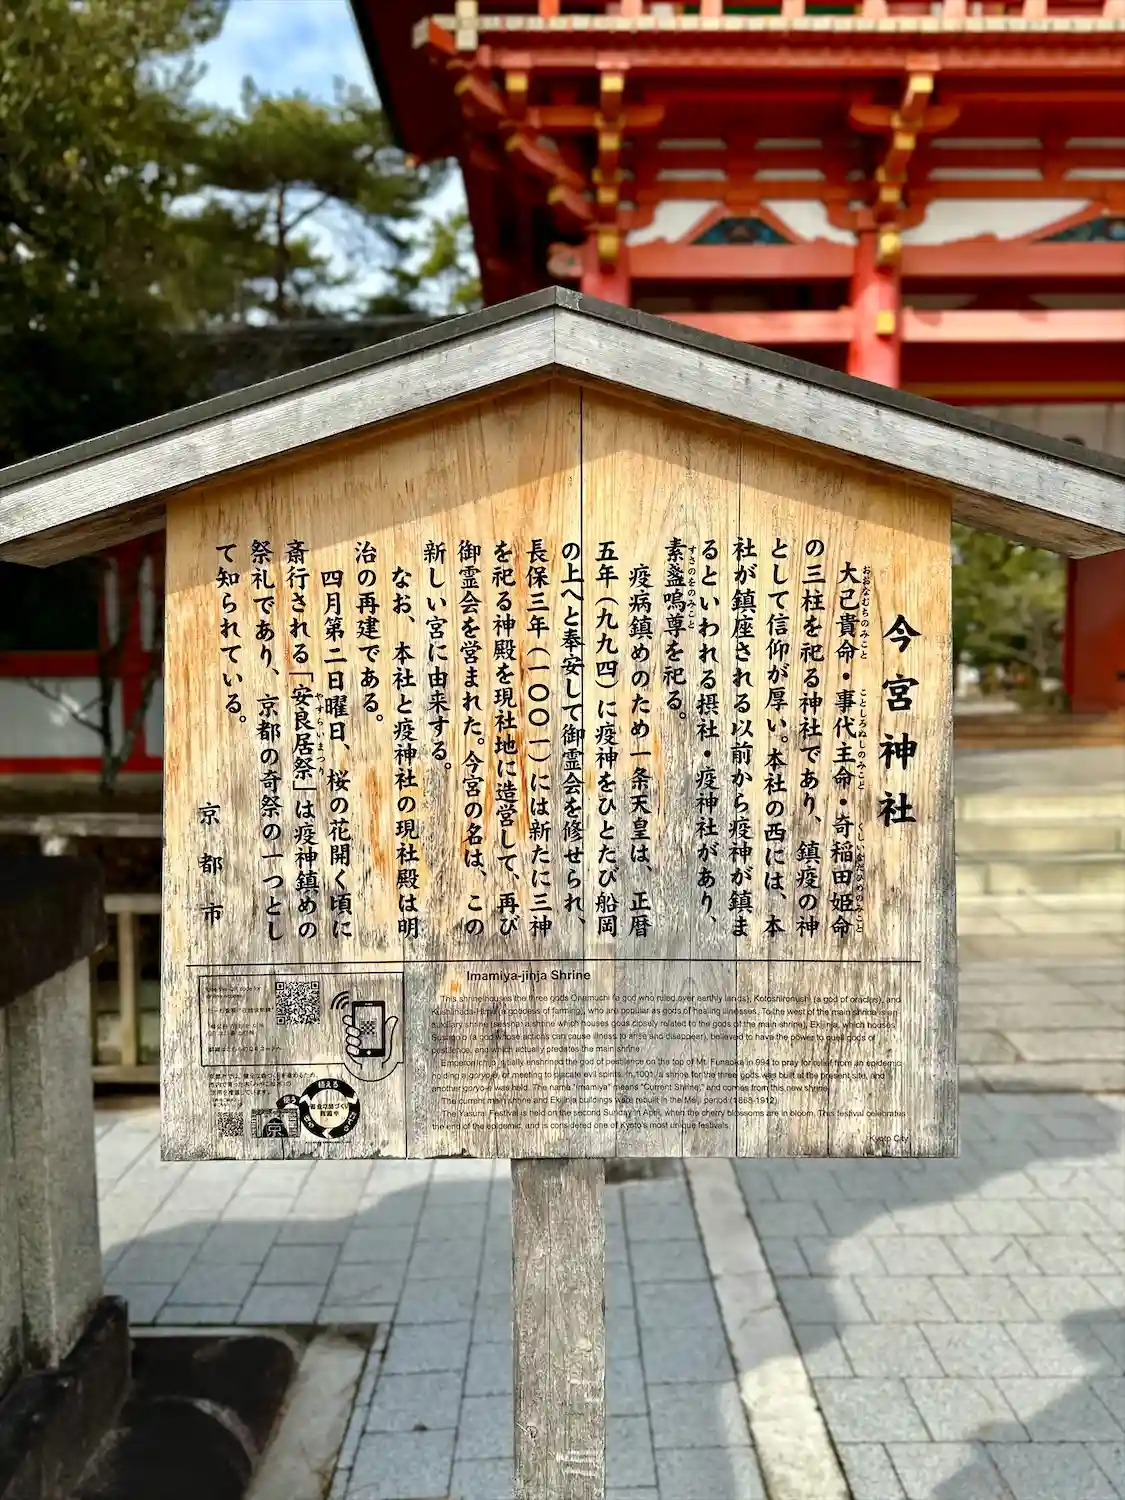 今宮神社
大己貴命・事代主命・奇稲田姫命
おおなむちのみこと ことしろぬしのみこと くしいなだひめのみこと
の三柱を祀る神社であり、鎮疫の神
として信仰が厚い。本社の西には、本
社が鎮座される以前から疫神が鎮ま
るといわれる摂社・疫神社があり、
素盞嗚尊を祀る。
すさのをのみこと
疫病鎮めのため一条天皇は、正暦
五年(九九四)に疫神をひとたび船岡
の上へと奉安して御霊会を修せられ、
長保三年(一〇〇一)には新たに三神
を祀る神殿を現社地に造営して、再び
御霊会を営まれた。今宮の名は、この
新しい宮に由来する。
なお、本社と疫神社の現社殿は明
治の再建である。
四月第二日曜日、桜の花開く頃に
斎行される「安良居祭」は疫神鎮めの
やすらいまつり
祭礼であり、京都の奇祭の一つとし
て知られている。
京都市
Imamiya-jinja Shrine
This shrine houses the three gods Onamuchi (a god who ruled over earthly lands), Kotoshironushi (a god of oracles), and
Kushinada-Hime (a goddess of farming), who are popular as gods of healing illnesses. To the west of the main shrine is an
auxiliary shrine (sessha: a shrine which houses gods closely related to the gods of the main shrine), Ekijinja, which houses
Susanoo (a god whose actions can cause illness to arise and disappear), believed to have the power to quell gods of
pestilence, and which actually predates the main shrine.
Emperor Ichijo initially enshrined the god of pestilence on the top of Mt. Funaoka in 994 to pray for relief from an epidemic
holding goryo-e, or meeting to placate evil spirits. In 1001, a shrine for the three gods was built at the present site, and
another goryo-e was held. The name "Imamiya" means "Current Shrine," and comes from this new shrine.
The current main shrine and Ekijinja buildings were rebuilt in the Meiji period (1868-1912).
The Yasurai Festival is held on the second Sunday in April, when the cherry blossoms are in bloom. This festival celebrates
the end of the epidemic, and is considered one of Kyoto's most unique festivals.
Kyoto City
植える
京